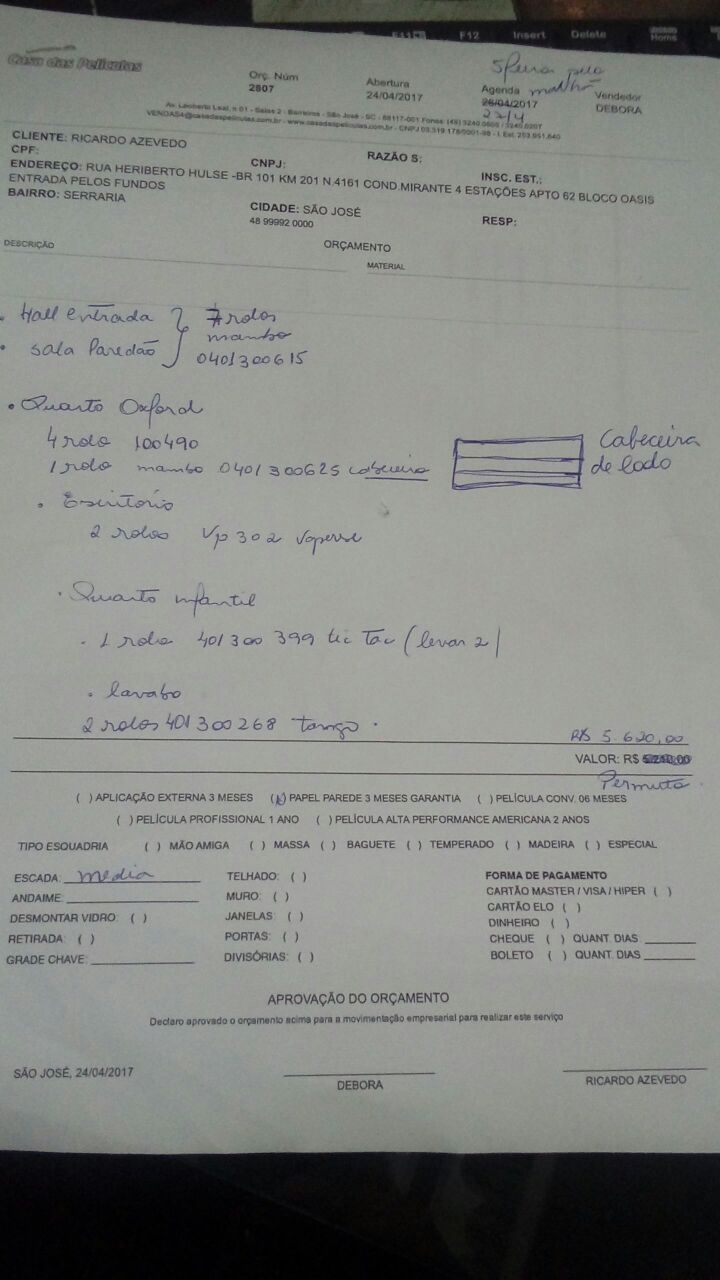 F11 F12 Insert Delete Home
Casa das Películas
Orç. Núm
2807
Abertura
24/04/2017
5 feira pela
manhã
Agenda
26/04/2017
27/4
Vendedor
DEBORA
Av. Leoberto Leal, n 01 - Salas 2 - Barreiros - São José - SC - 88117-001 Fones: (48) 3240.0606 / 3240.0207
CLIENTE: RICARDO AZEVEDO
CPF: CNPJ: RAZÃO S: INSC. EST.:
ENDEREÇO: RUA HERIBERTO HULSE -BR 101 KM 201 N.4161 COND.MIRANTE 4 ESTAÇÕES APTO 62 BLOCO OASIS
ENTRADA PELOS FUNDOS
BAIRRO: SERRARIA CIDADE: SÃO JOSÉ RESP:
48 99992 0000
DESCRIÇÃO ORÇAMENTO
MATERIAL
• Hall entrada } 7 rolos
mambo
• sala Paredão 0401300615
• Quarto Oxford
4 rolo 100490
1 rolo mambo 0401300625 cabeceira
Cabeceira
de lado
• Escritorio
2 rolos Vp302
• Quarto infantil
• 1 rolo 401300399 tic Tac (levar 2)
• lavabo
2 rolos 401300268 tango.
R$ 5.620,00
VALOR: R$
Permuta.
( ) APLICAÇÃO EXTERNA 3 MESES (x) PAPEL PAREDE 3 MESES GARANTIA ( ) PELÍCULA CONV. 06 MESES
( ) PELÍCULA PROFISSIONAL 1 ANO ( ) PELÍCULA ALTA PERFORMANCE AMERICANA 2 ANOS
TIPO ESQUADRIA ( ) MÃO AMIGA ( ) MASSA ( ) BAGUETE ( ) TEMPERADO ( ) MADEIRA ( ) ESPECIAL
ESCADA: media TELHADO: ( ) FORMA DE PAGAMENTO
ANDAIME: MURO: ( ) CARTÃO MASTER / VISA / HIPER ( )
CARTÃO ELO ( )
DESMONTAR VIDRO: ( ) JANELAS: ( ) DINHEIRO ( )
RETIRADA: ( ) PORTAS: ( ) CHEQUE ( ) QUANT. DIAS
GRADE CHAVE: DIVISÓRIAS: ( ) BOLETO ( ) QUANT. DIAS
APROVAÇÃO DO ORÇAMENTO
Declaro aprovado o orçamento acima para a movimentação empresarial para realizar este serviço
SÃO JOSÉ, 24/04/2017
DEBORA RICARDO AZEVEDO